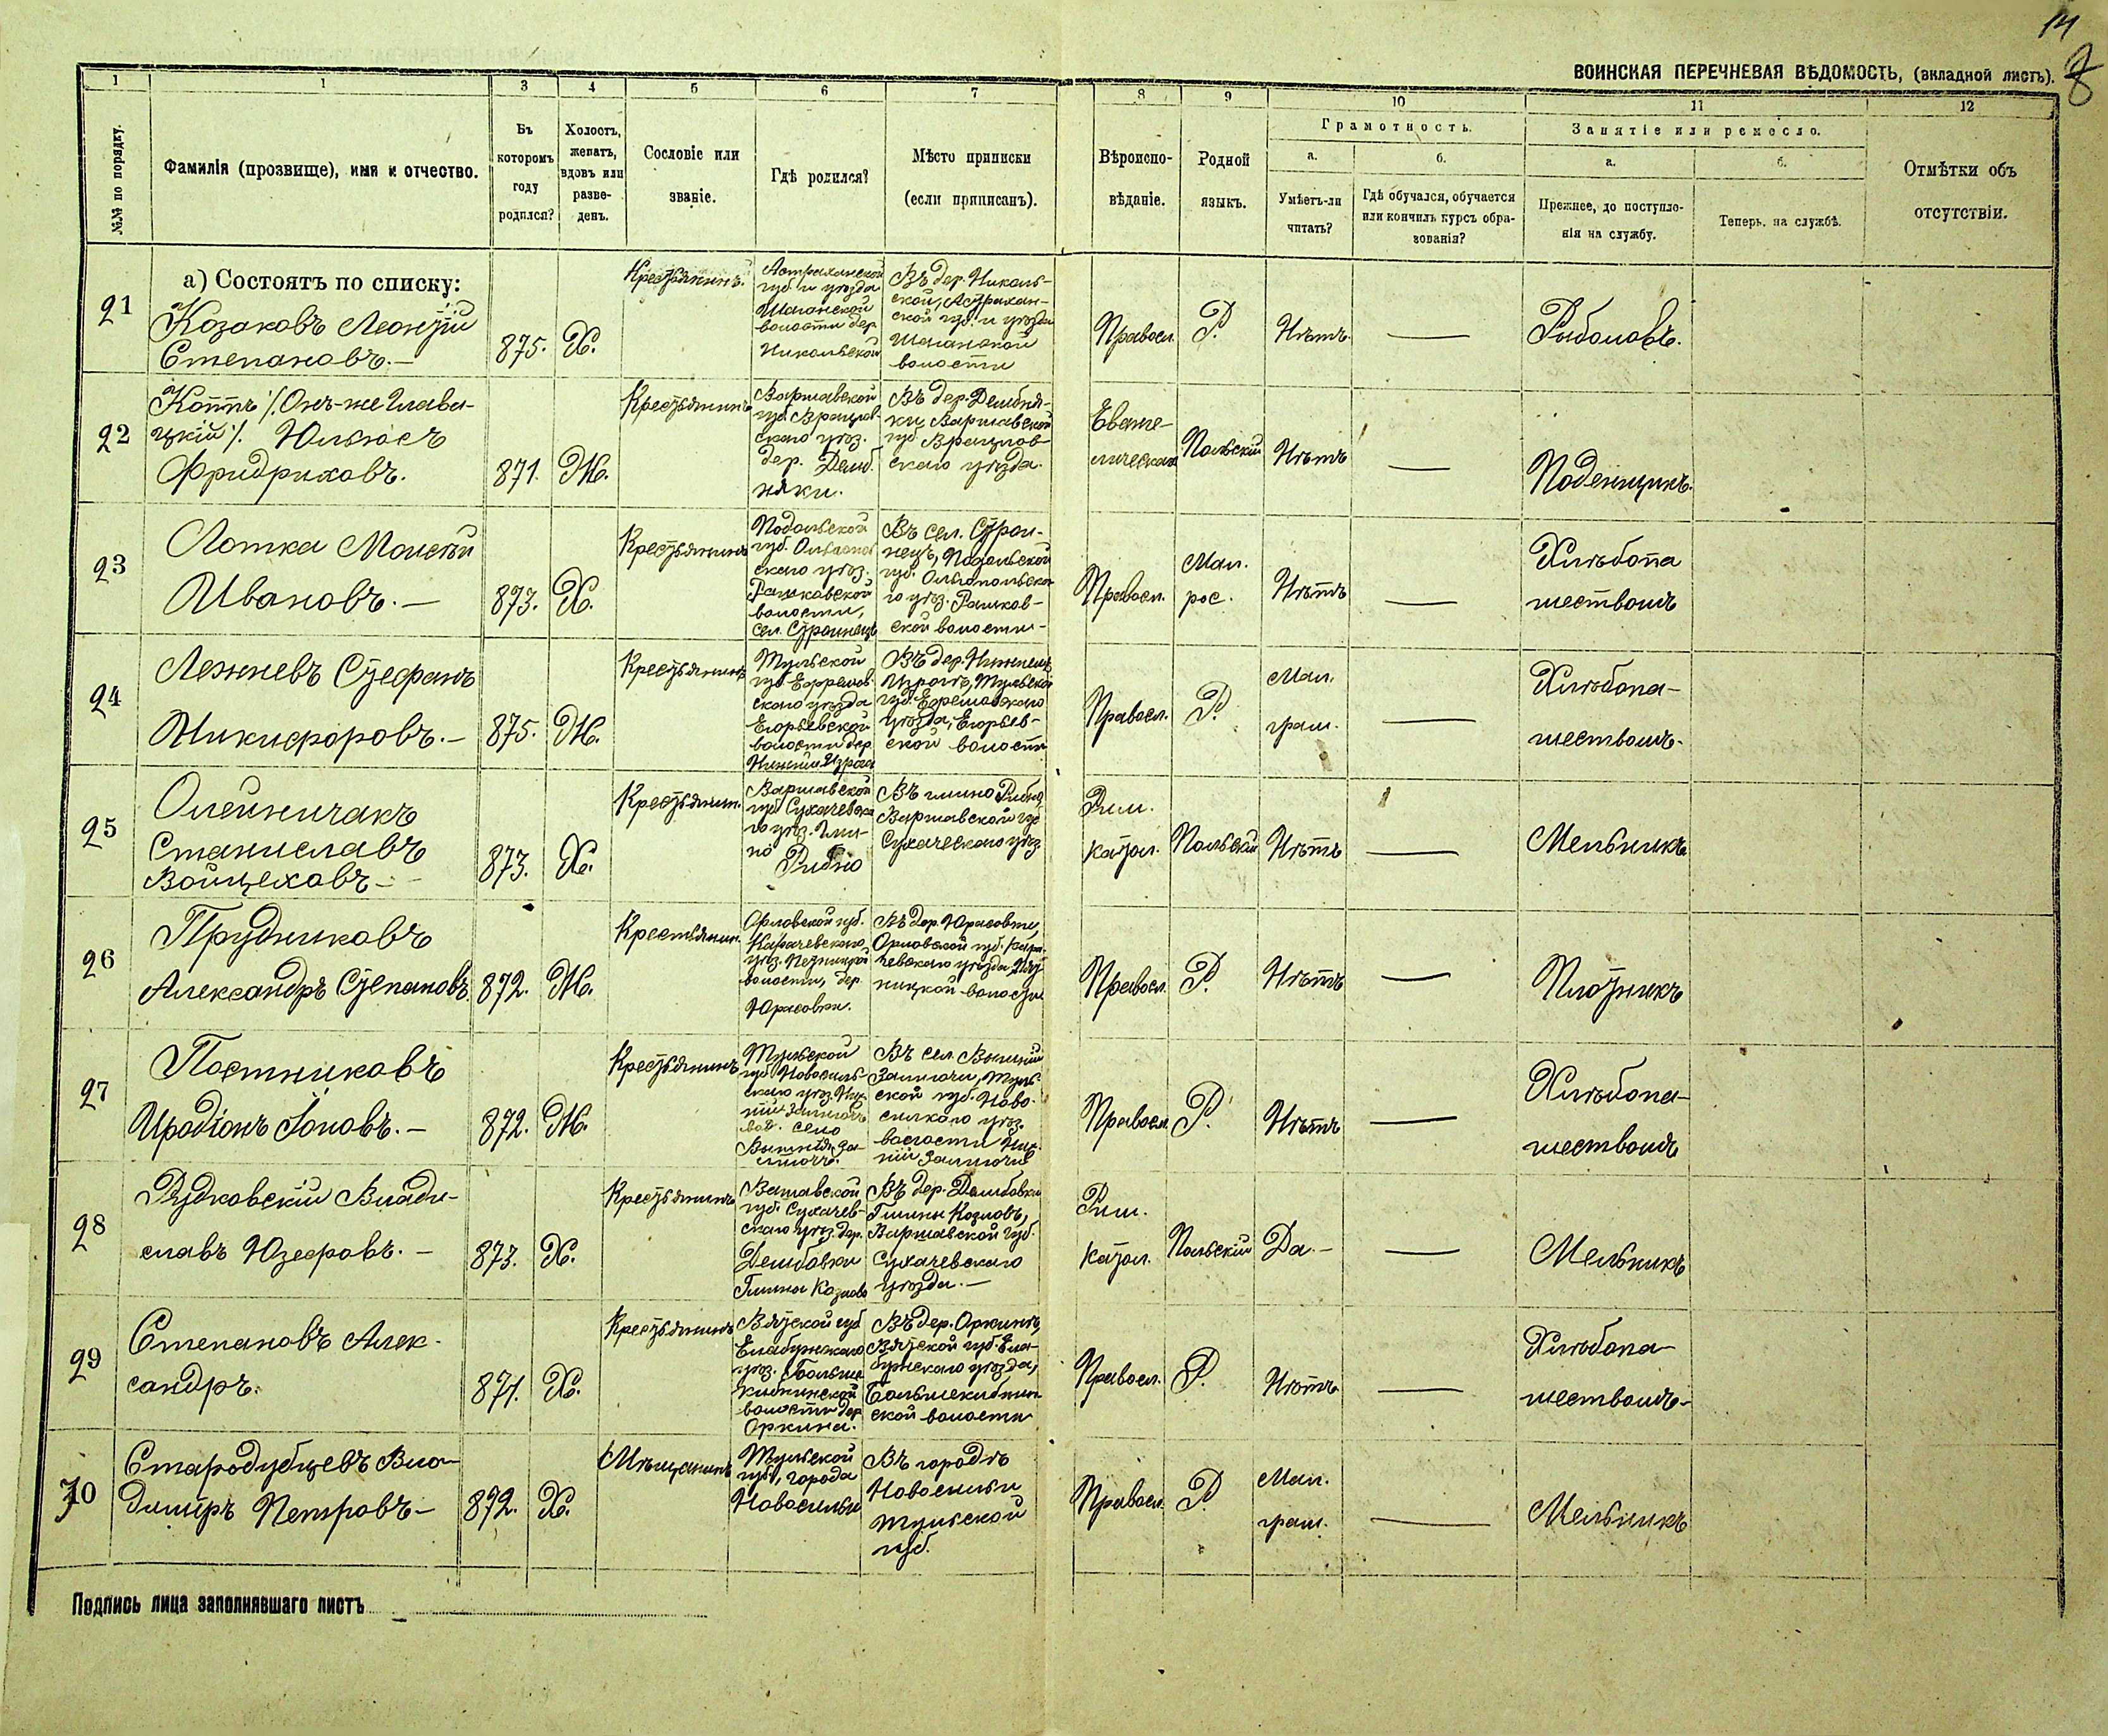 14
8
ВОИНСКАЯ ПЕРЕЧНЕВАЯ ВѢДОМОСТЬ, (вкладной листъ).
1 1 3 4 5 6 7 8 9 10 11 12
№№ по порядку.
Фамилія (прозвище), имя и отчество.
Въ
которомъ
году
родился?
Холостъ,
женатъ,
вдовъ или
разве-
денъ.
Сословіе или
званіе.
Гдѣ родился?
Мѣсто приписки
(если приписанъ).
Вѣроиспо-
вѣданіе.
Родной
языкъ.
Грамотность.
а.
Умѣетъ-ли
читать?
б.
Гдѣ обучался, обучается
или кончилъ курсъ обра-
зованія?
Занятіе или ремесло.
а.
Прежнее, до поступле-
нія на службу.
б.
Теперь, на службѣ.
Отмѣтки объ
отсутствіи.
а) Состоятъ по списку:
21
Козаковъ Леонтій
Степановъ.—
875.
Х.
Крестьянинъ.
Астраханской
губ. и уѣзда
волости дер.
Никольской
Въ дер. Николь-
ской, Астрахан-
ской губ. и уѣзда
волости
Правосл.
Р.
Нѣтъ.
—
Рыболовъ.
22
Коттъ /. Онъ-же Глава-
цкій /. Юльюсъ
Фридриховъ.
871.
Ж.
Крестьянинъ
Варшавской
губ.
скаго уѣз.
дер. Демб.
няки.
Въ дер. Дембня-
ки Варшавской
губ.
скаго уѣзда.
Еванге-
лическая
Польскій
Нѣтъ
—
Поденщикъ.
23
Лотка Моисей
Ивановъ.—
873.
Х.
Крестьянинъ
Подольской
губ.
скаго уѣз.
Рашковской
волости,
сел. Строинецъ
Въ сел. Строи-
нецъ, Подольской
губ. Ольгопольска-
го уѣз. Рашков-
ской волости—
Правосл.
Мал.
рос.
Нѣтъ
—
Хлѣбопа
шествомъ
24
Лежневъ Стефанъ
Никифоровъ.—
875.
Ж.
Крестьянинъ
Тульской
губ. Ефремов-
скаго уѣзда
Егорьевской
волости дер.
Въ дер.
Тульской
губ. Ефремовскаго
уѣзда, Егорьев-
ской волости
Правосл.
Р.
Мал.
грам.
—
Хлѣбопа-
шествомъ.
25
Олейничакъ
Станиславъ
Войцеховъ—
873.
Х.
Крестьянин.
Варшавской
губ. Сухачевска-
го уѣз. Гми-
но
Рибно
Въ гмино Рибно,
Варшавской губ
Сухачевскаго уѣз.
Рим.
катол.
Польскій
Нѣтъ
—
Мельникъ
26
Прудниковъ
Александръ Степановъ
872.
Ж.
Крестьянин.
Орловской губ.
Карачевскаго
уѣз.
волости, дер.
Юрасовки.
Въ дер. Юрасовкѣ,
Орловской губ. Кара-
чевскаго уѣзда
ницкой волости
Правосл.
Р.
Нѣтъ
—
Плотникъ
27
Постниковъ
Иродіонъ Іоновъ.—
872.
Ж.
Крестьянинъ
Тульской
губ. Новосиль-
скаго уѣз. Ниж-
ній
вол. село
Въ сел.
Туль-
ской губ. Ново-
сильскаго уѣз.
волости Ниж-
ній
Правосл.
Р.
Нѣтъ
—
Хлѣбопа-
шествомъ
28
Рудковскій Влади-
славъ Юзефовъ.—
873.
Х.
Крестьянинъ
губ. Сухачев-
скаго уѣз. дер.
Дембовки
Гмины Козлово
Въ дер. Дембовки
Гмины Козловъ,
Варшавской губ.
Сухачевскаго
уѣзда.—
Рим.
катол.
Польскій
Да.—
—
Мельникъ
29
Степановъ Алек-
сандръ.
871.
Х.
Крестьянинъ
Вятской губ
Елабужскаго
уѣз. Больше
кибьинской
волости дер
Оркина.
Въ дер. Оркинѣ,
Вятской губ. Ела-
бужскаго уѣзда,
Большекибьин-
ской волости
Правосл.
Р.
Нѣтъ.
—
Хлѣбопа—
шествомъ—
30
Стародубцевъ Вла-
диміръ Петровъ—
872.
Х.
Мѣщанинъ
Тульской
губ., города
Новосильи
Въ городѣ
Новосильи
Тульской
губ.
Правосл.
Р.
Мал.
грам.
—
Мельникъ
Подпись лица заполнявшаго листъ